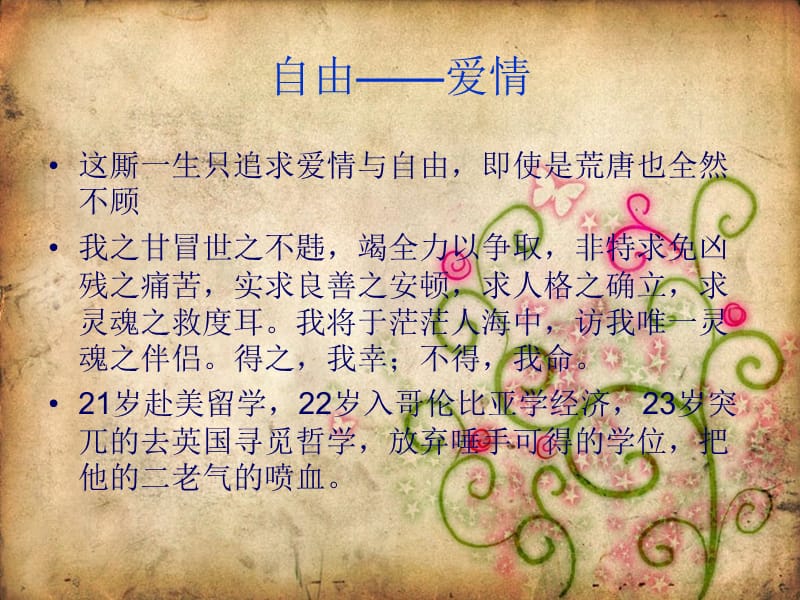 自由——爱情
• 这厮一生只追求爱情与自由，即使是荒唐也全然
不顾
• 我之甘冒世之不韪，竭全力以争取，非特求免凶
残之痛苦，实求良善之安顿，求人格之确立，求
灵魂之救度耳。我将于茫茫人海中，访我唯一灵
魂之伴侣。得之，我幸；不得，我命。
• 21岁赴美留学，22岁入哥伦比亚学经济，23岁突
兀的去英国寻觅哲学，放弃唾手可得的学位，把
他的二老气的喷血。